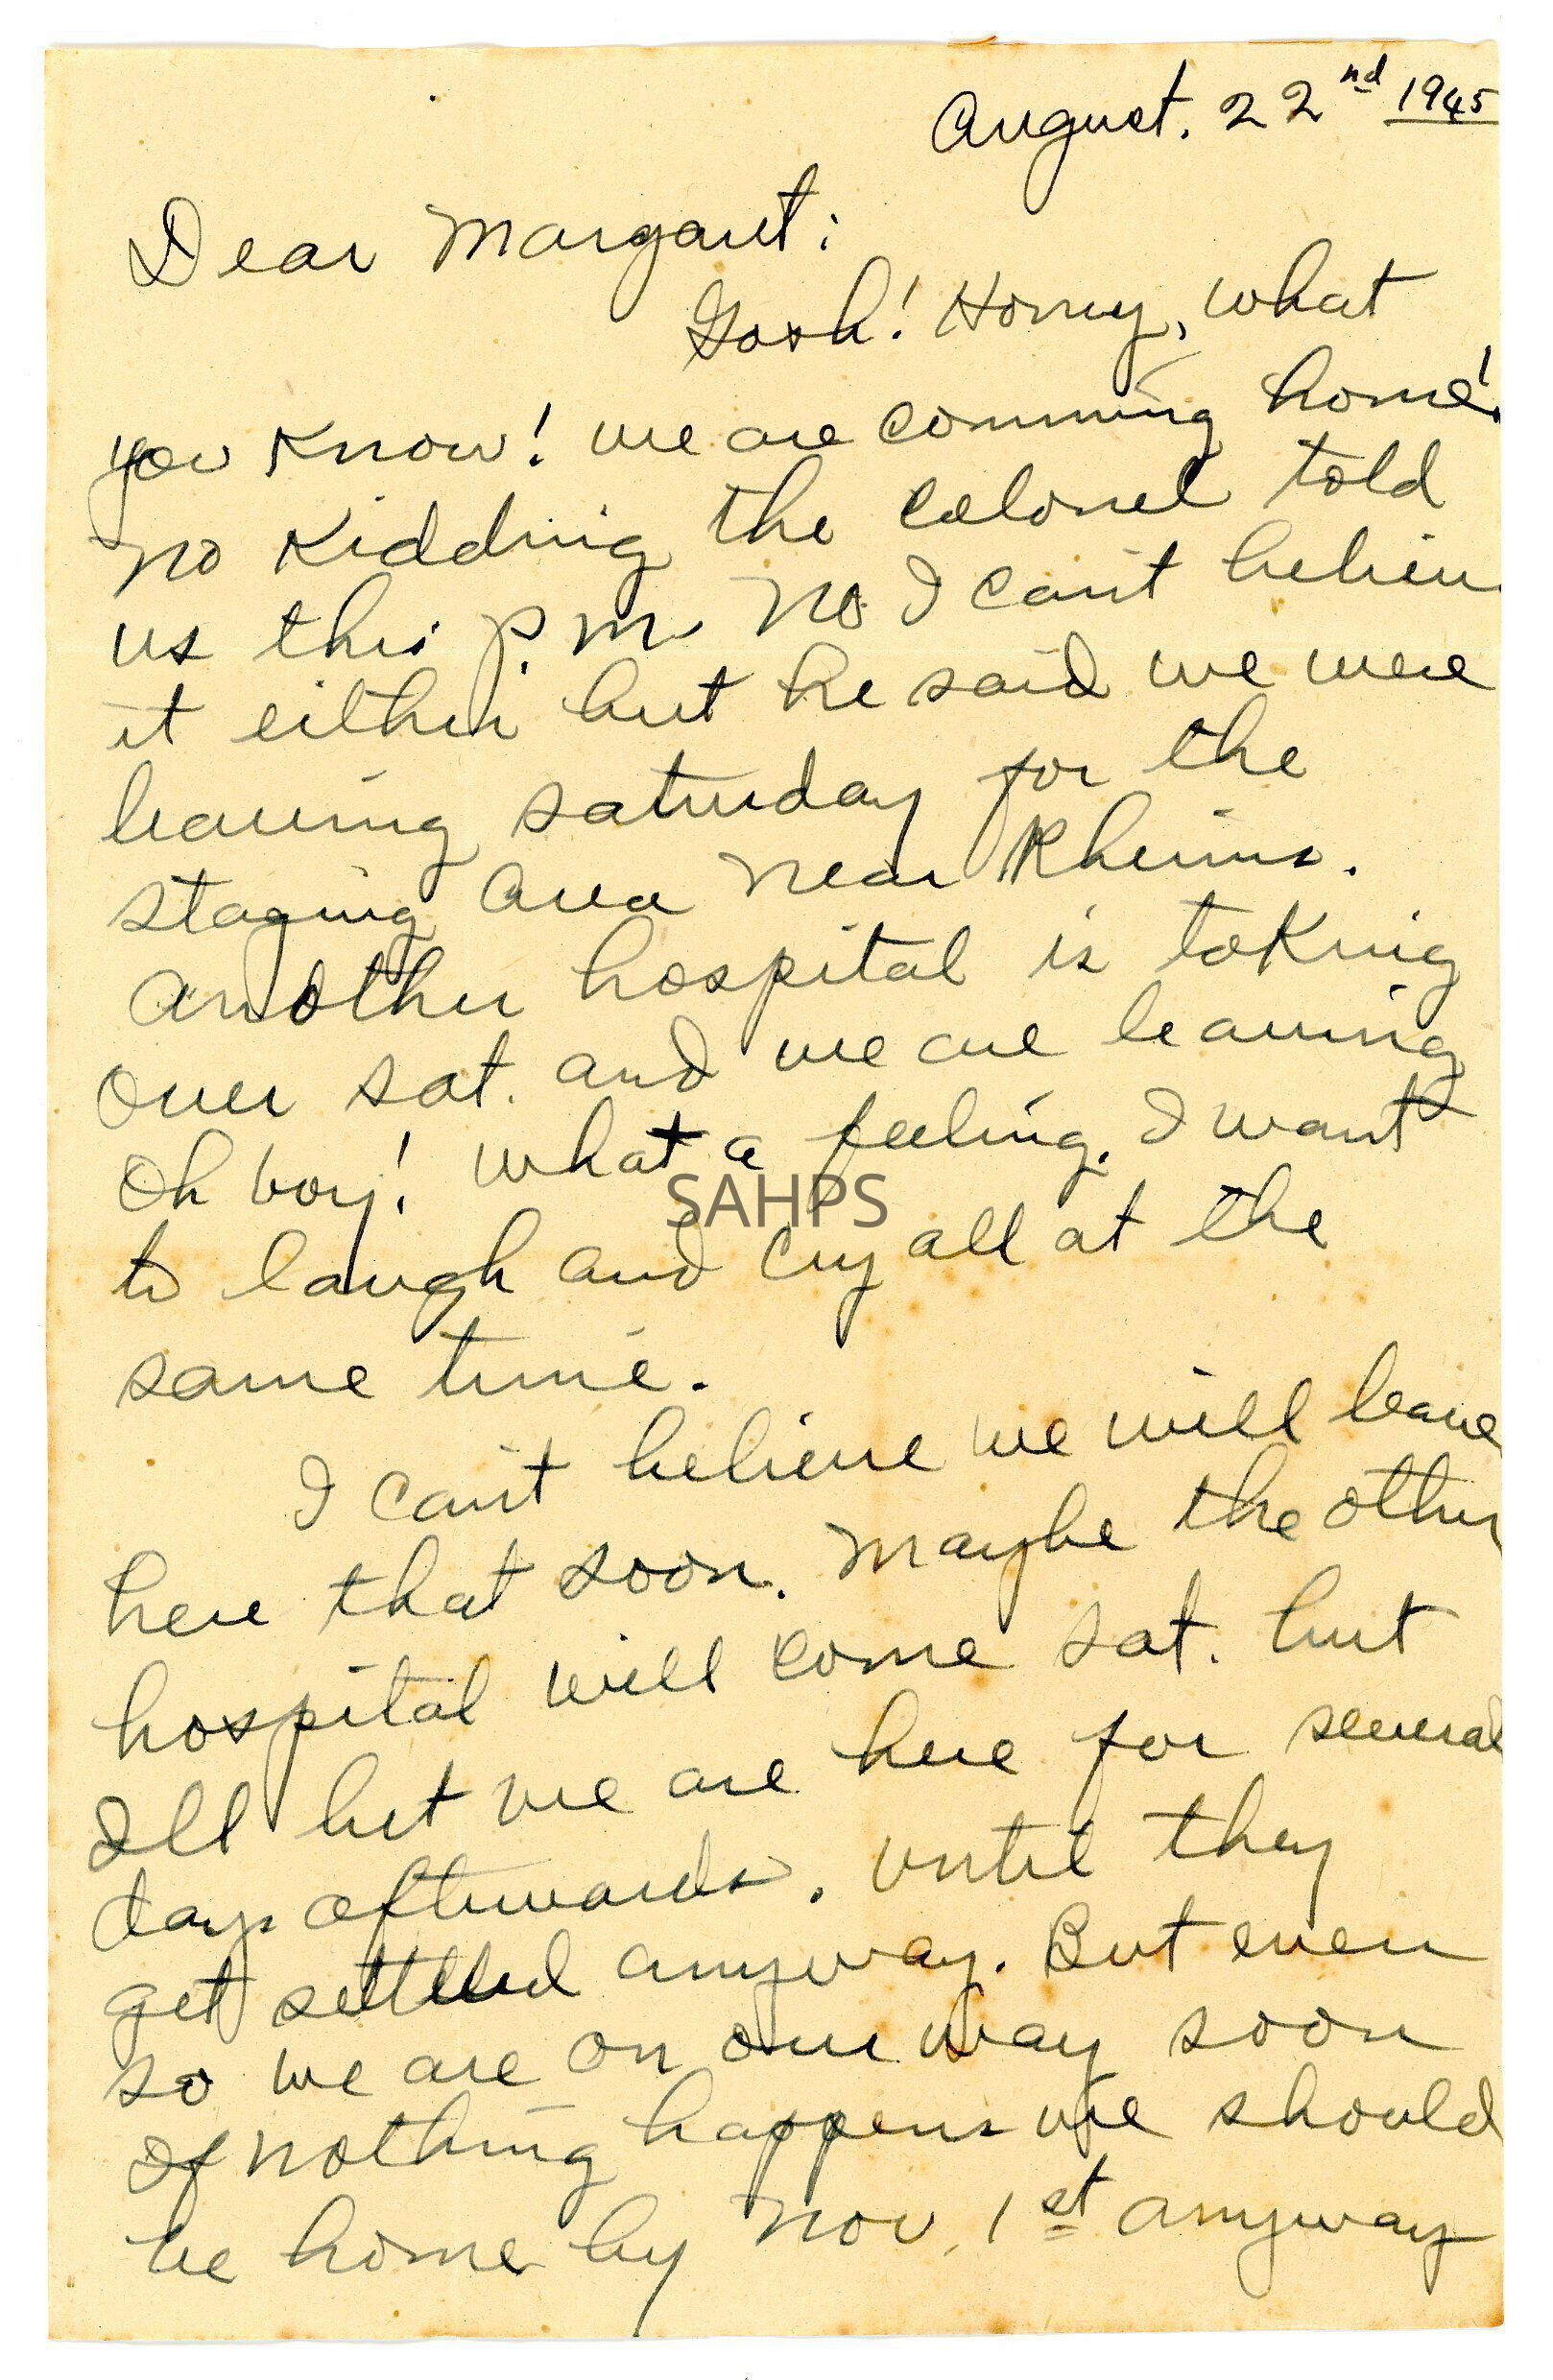 August. 22nd 1945
Dear Margaret:
Gosh! Honey, what
you know! we are comming home!
no kidding the colonel told
us this p.m. No I can't believe
it either but he said we were
leaving saturday for the
staging area near Rheims.
Another hospital is taking
over sat. and we are leaving
Oh boy! what a feeling. I want
SAHPS
to laugh and cry all at the
same time.
I can't believe we will leave
here that soon. Maybe the other
hospital will come sat. but
I'll bet we are here for several
days afterwards. until they
get settled anyway. But even
so we are on our way soon
If nothing happens we should
be home by Nov. 1st anyway